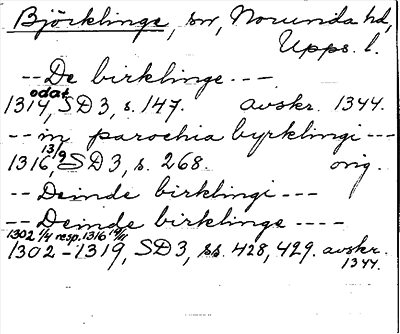 Björklinge, sn, Norunda hd,
Upps. l.
-- De birklinge ---
odat
1314, SD 3, s. 147. avskr. 1344.
-- in parochia byrklingi ---
13/9
1316, SD 3, s. 268. orig.
-- Deinde birklingi ---
-- Deinde birklinge ----
1302 4/4 resp. 1316 19/11
1302-1319, SD 3, ss. 428, 429. avskr.
1344.